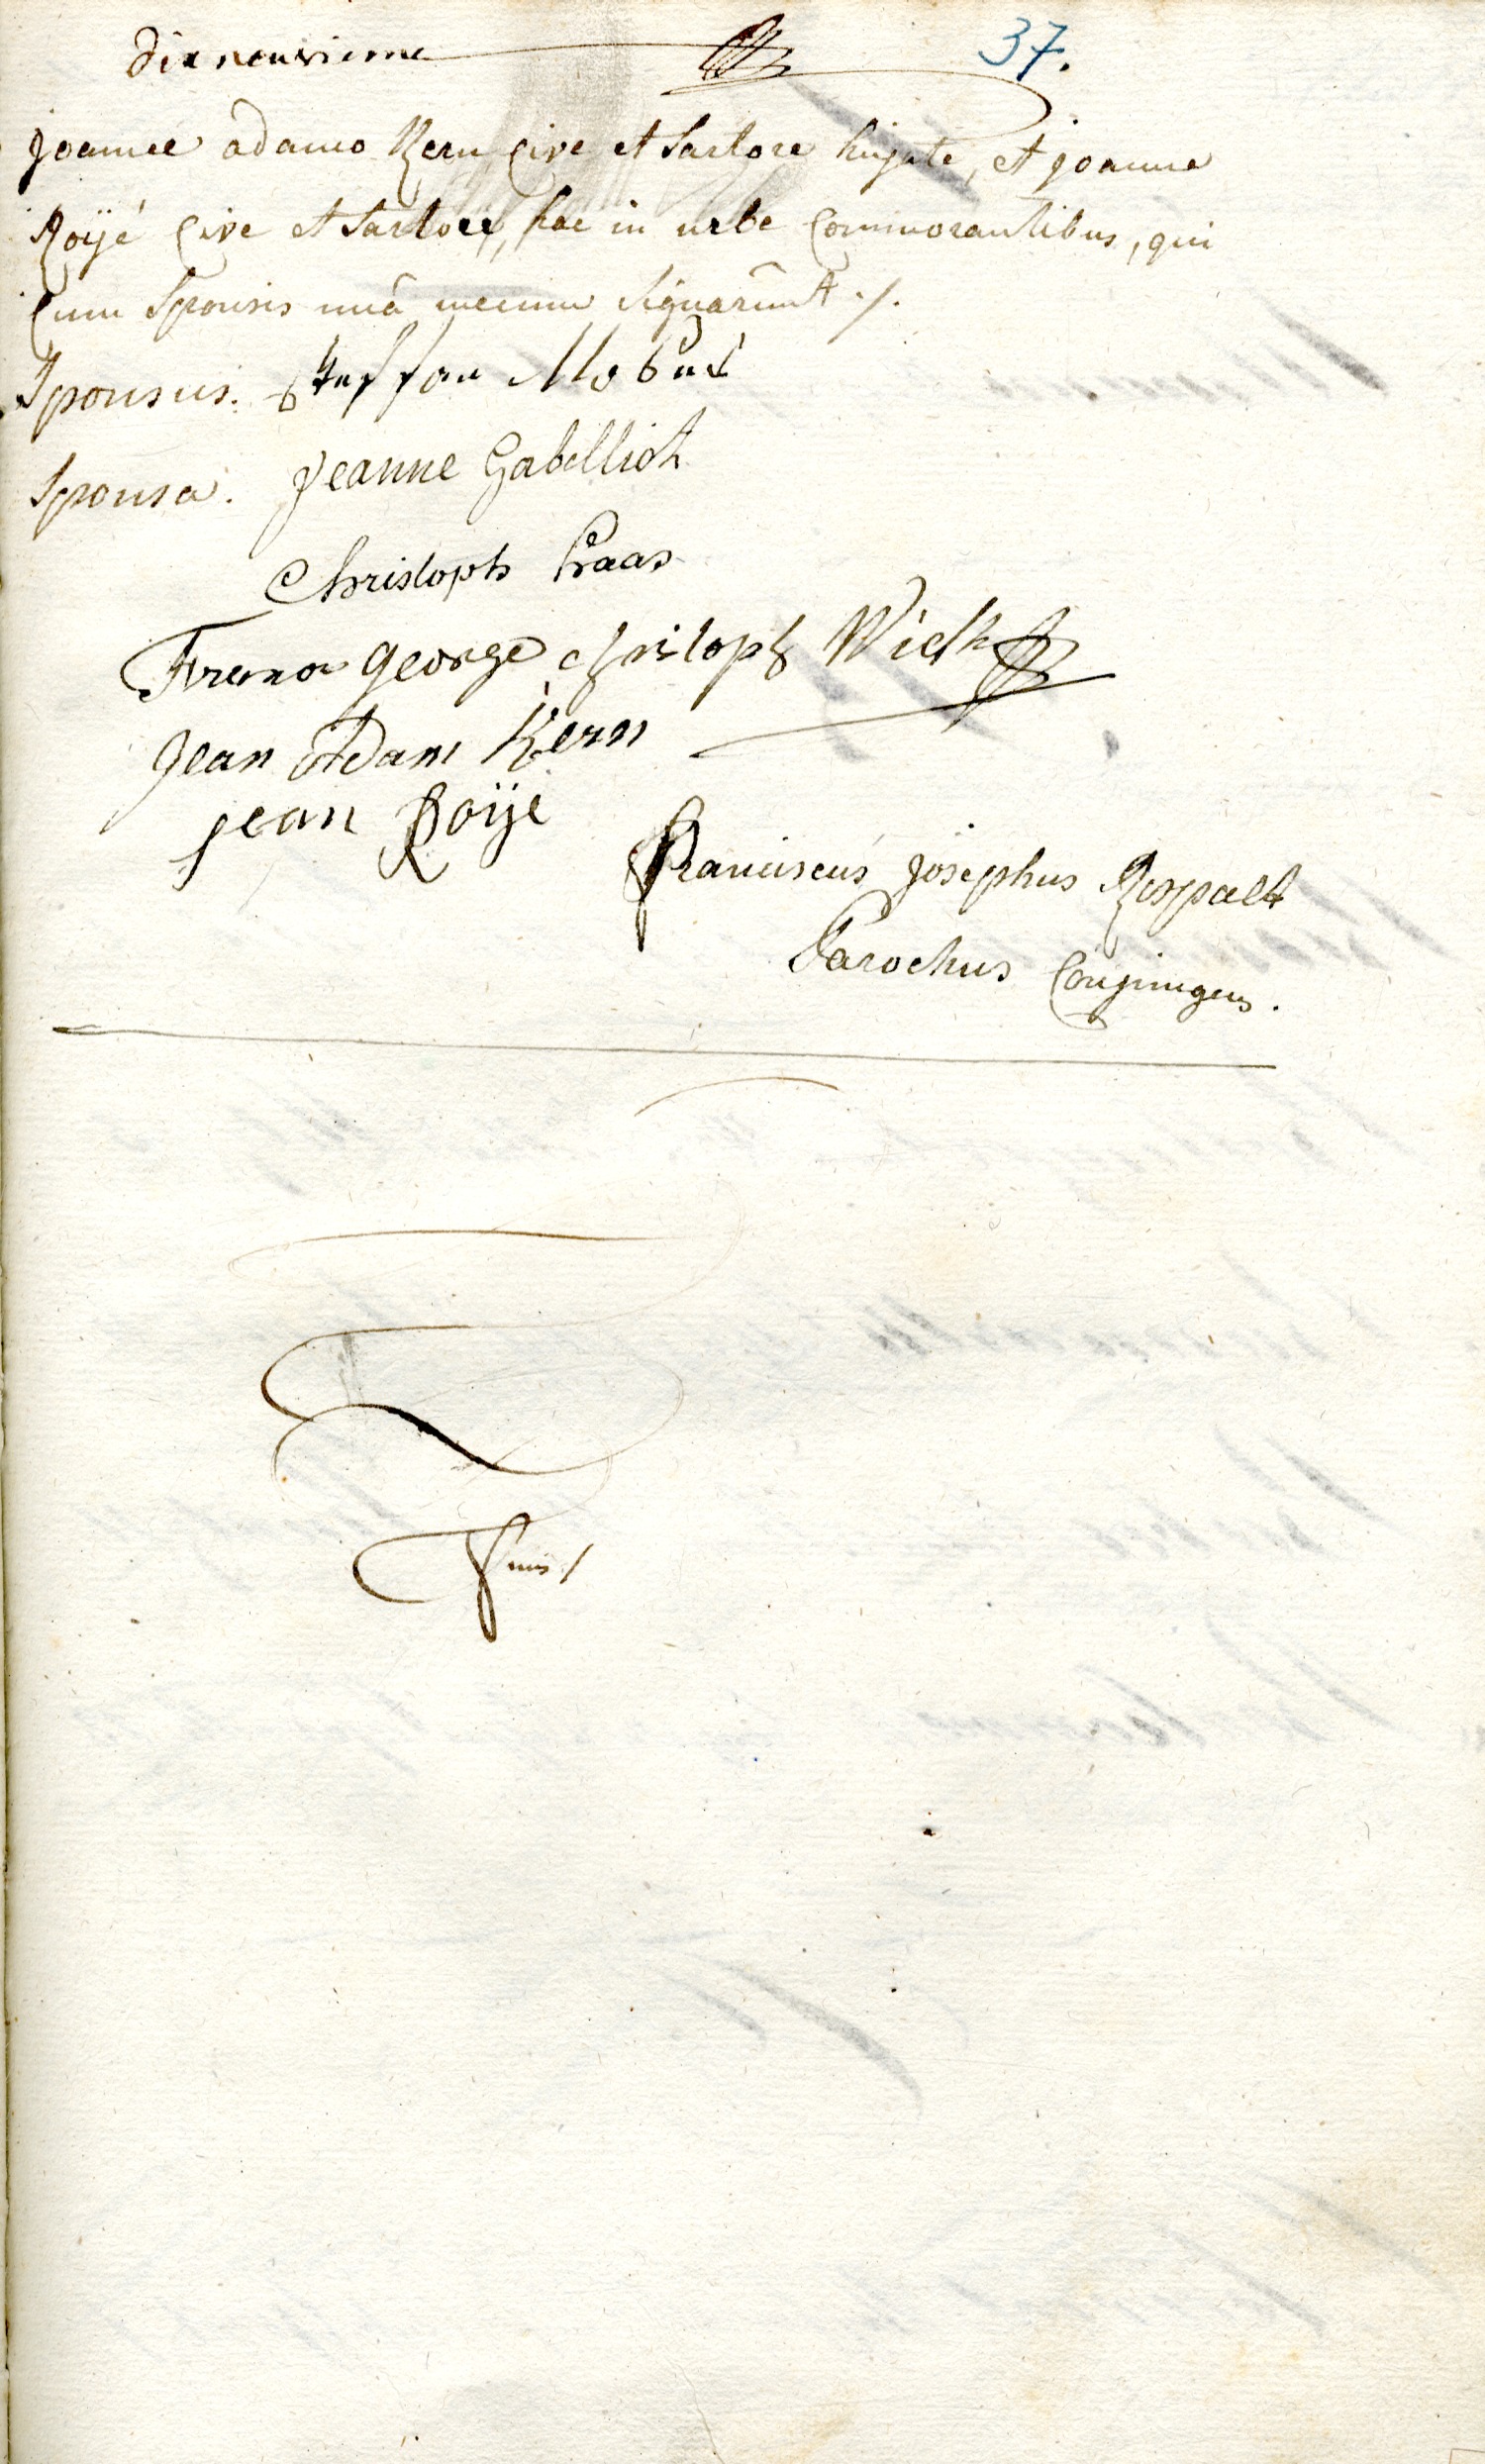 dix neuvieme 37.
Joanne adamo Kern Cive et Sartore hujate, et joanne
Roÿé Cive et Sartore, hac in urbe Commorantibus, qui
Cum Sponsis unâ mecum Signarûnt ./.
Sponsus. Steffan Mobus
Sponsa. Jeanne Gabelliot
Christoph Haas
George christoph
Jean Adam Kern
jean Roÿé
Franciscus josephus Rospalt
Parochus Conjungens.
Finis /